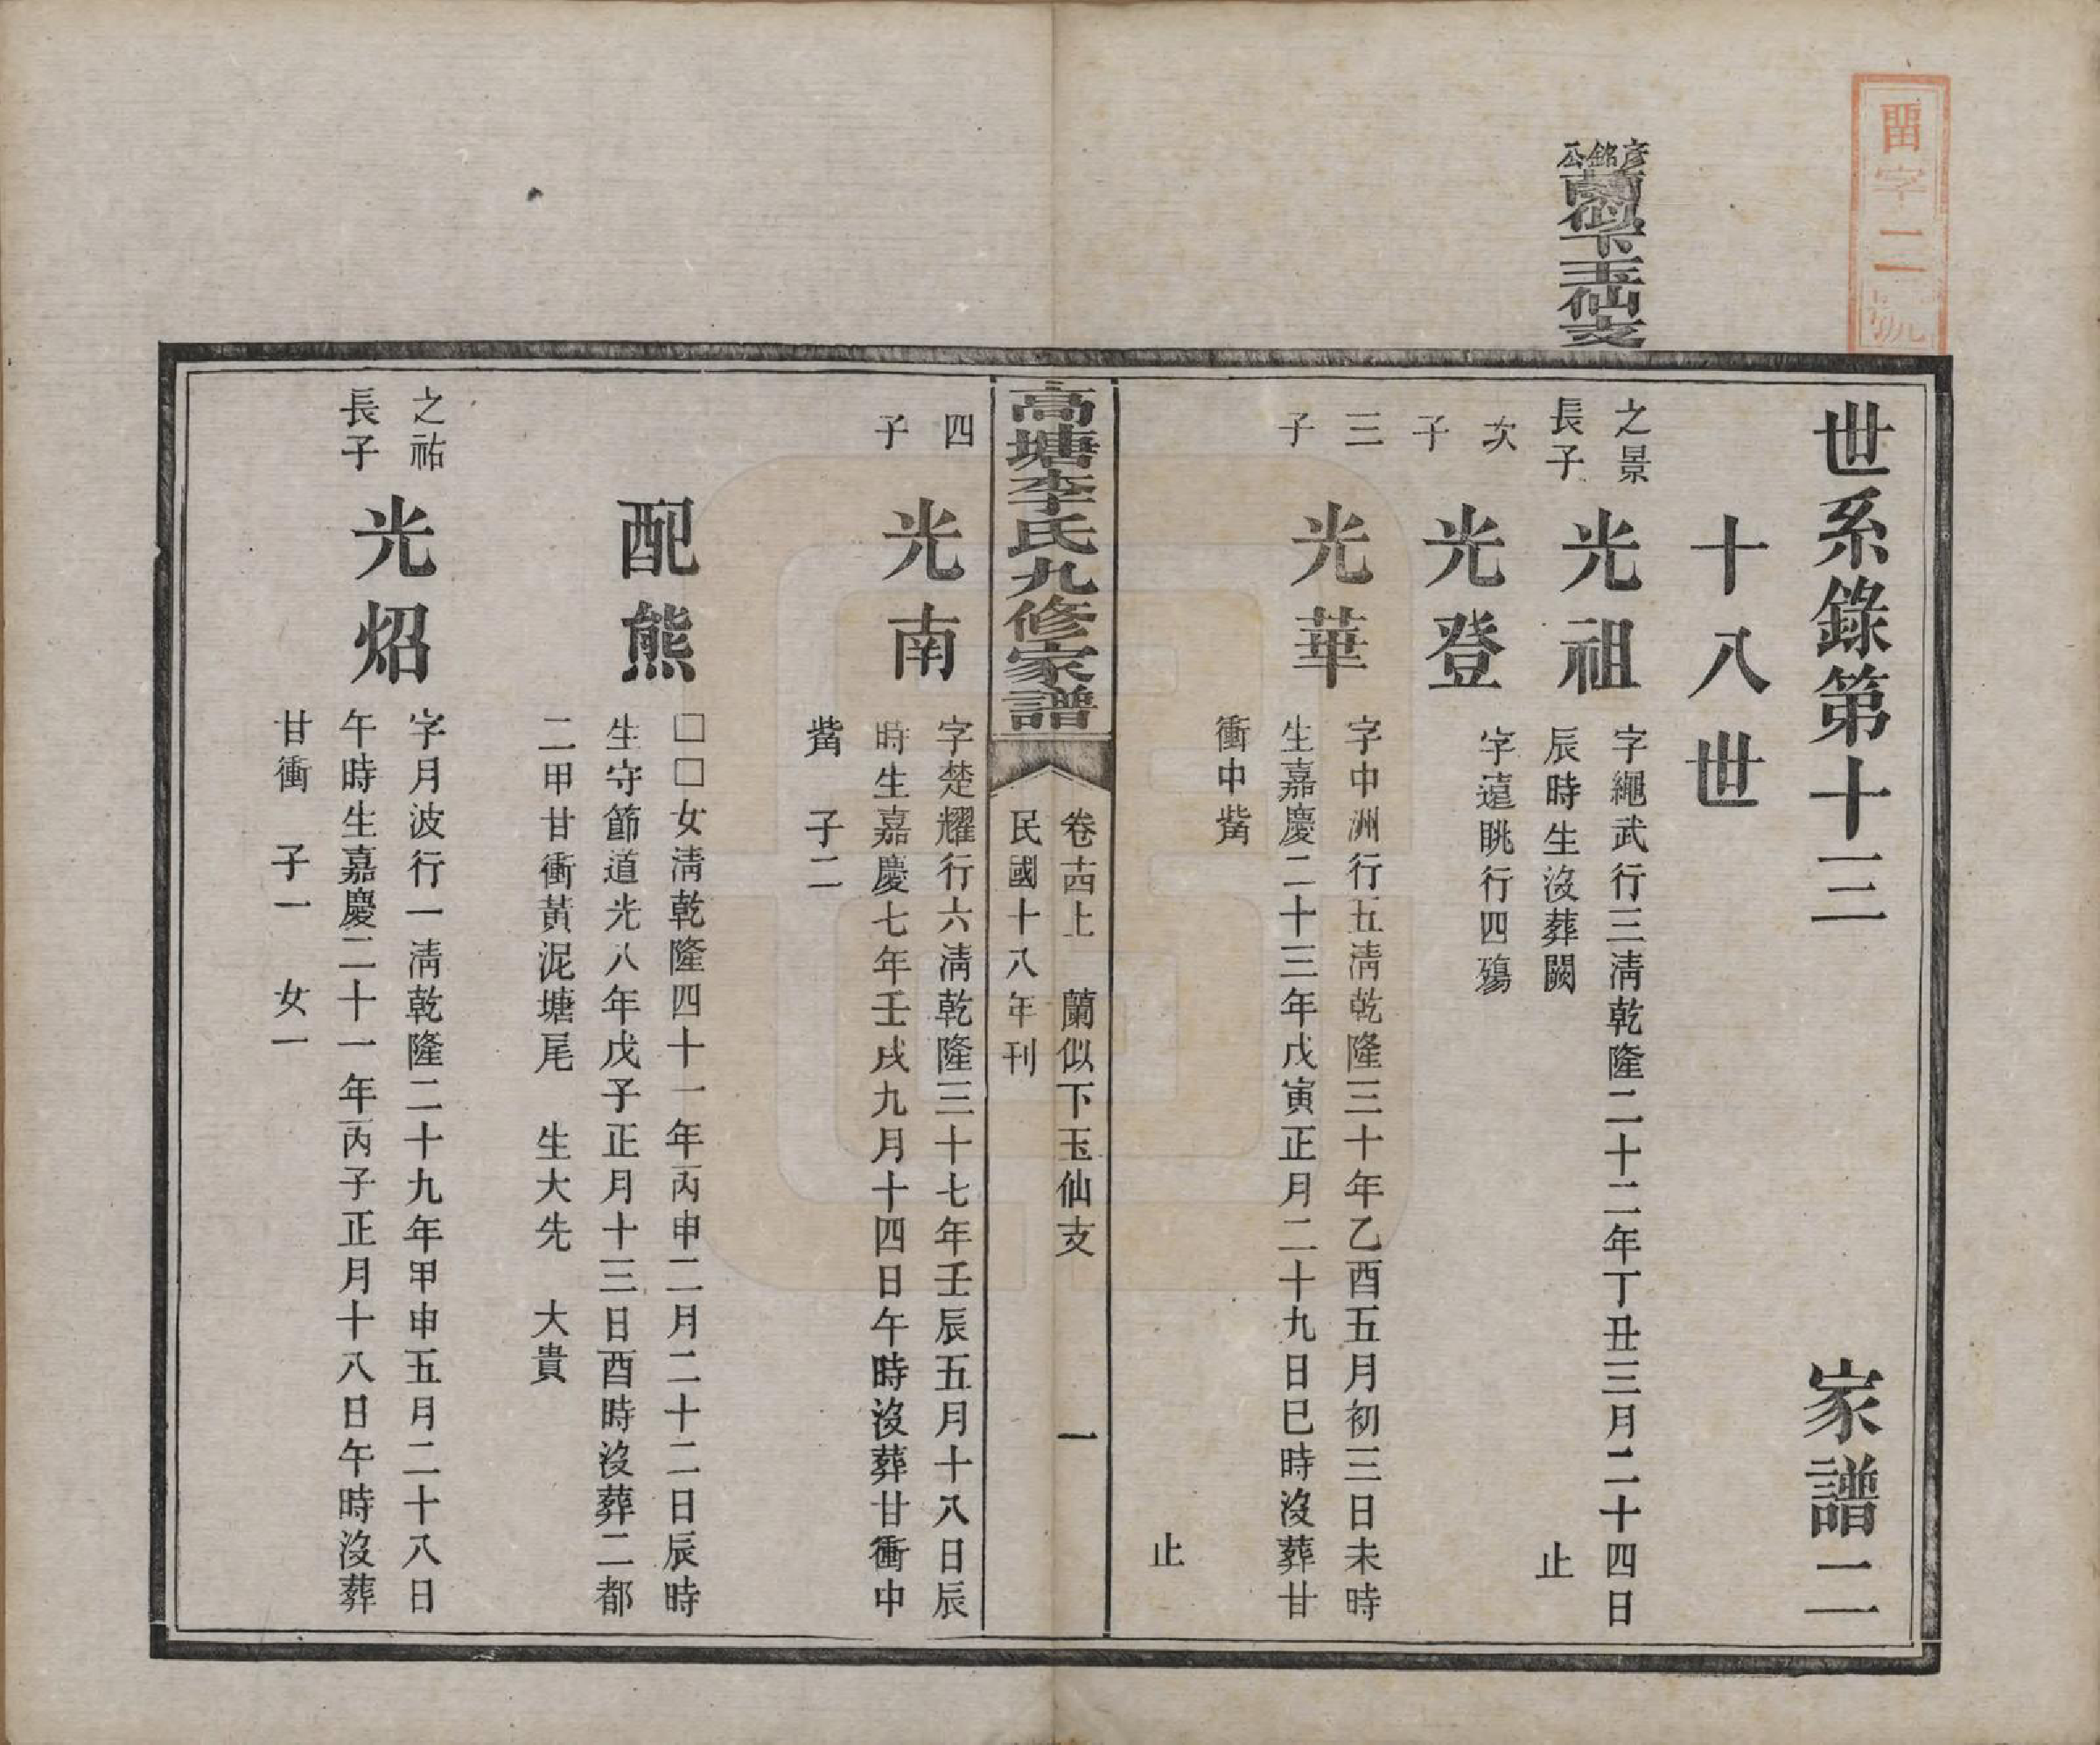 畱字二號
彥銘公蘭似下玉仙支
世系錄第十三 家譜二
十八世
之景長子 光祖 字繩武行三淸乾隆二十二年丁丑三月二十四日
辰時生沒葬闕 止
次子 光登 字遠眺行四殤
三子 光華 字中洲行五淸乾隆三十年乙酉五月初三日未時
生嘉慶二十三年戊寅正月二十九日巳時沒葬甘
衝中觜
止
卷十四上 蘭似下玉仙支 一
高塘李氏九修家譜
民國十八年刊
四子 光南 字楚耀行六淸乾隆三十七年壬辰五月十八日辰
時生嘉慶七年壬戌九月十四日午時沒葬甘衝中
觜 子二
配熊 □□女淸乾隆四十一年丙申二月二十二日辰時
生守節道光八年戊子正月十三日酉時沒葬二都
二甲甘衝黃泥塘尾 生大先 大貴
之祐長子 光炤 字月波行一淸乾隆二十九年甲申五月二十八日
午時生嘉慶二十一年丙子正月十八日午時沒葬
甘衝 子一 女一